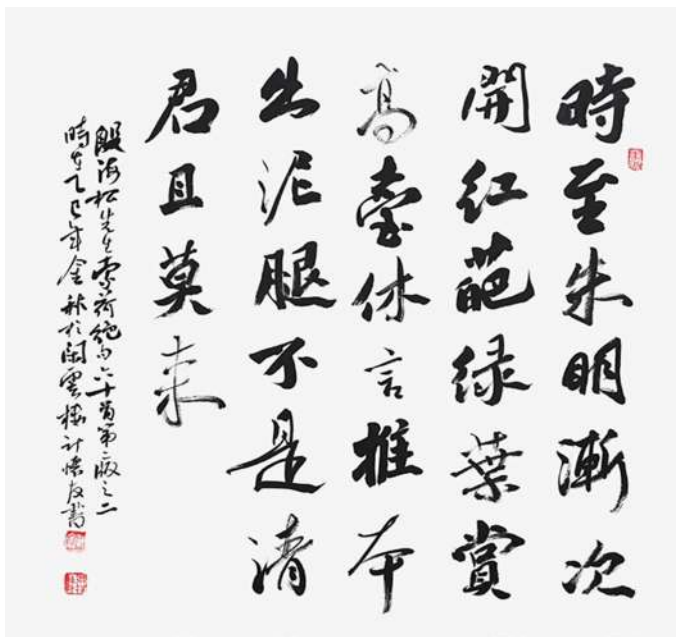 時至朱明漸次
開紅葩綠葉賞
高臺休言推本
出泥腿不是清
君且莫来
殷海松先生索荷絶句六十首第二版之二
時在乙巳年金秋於閑雲樓計懷友書